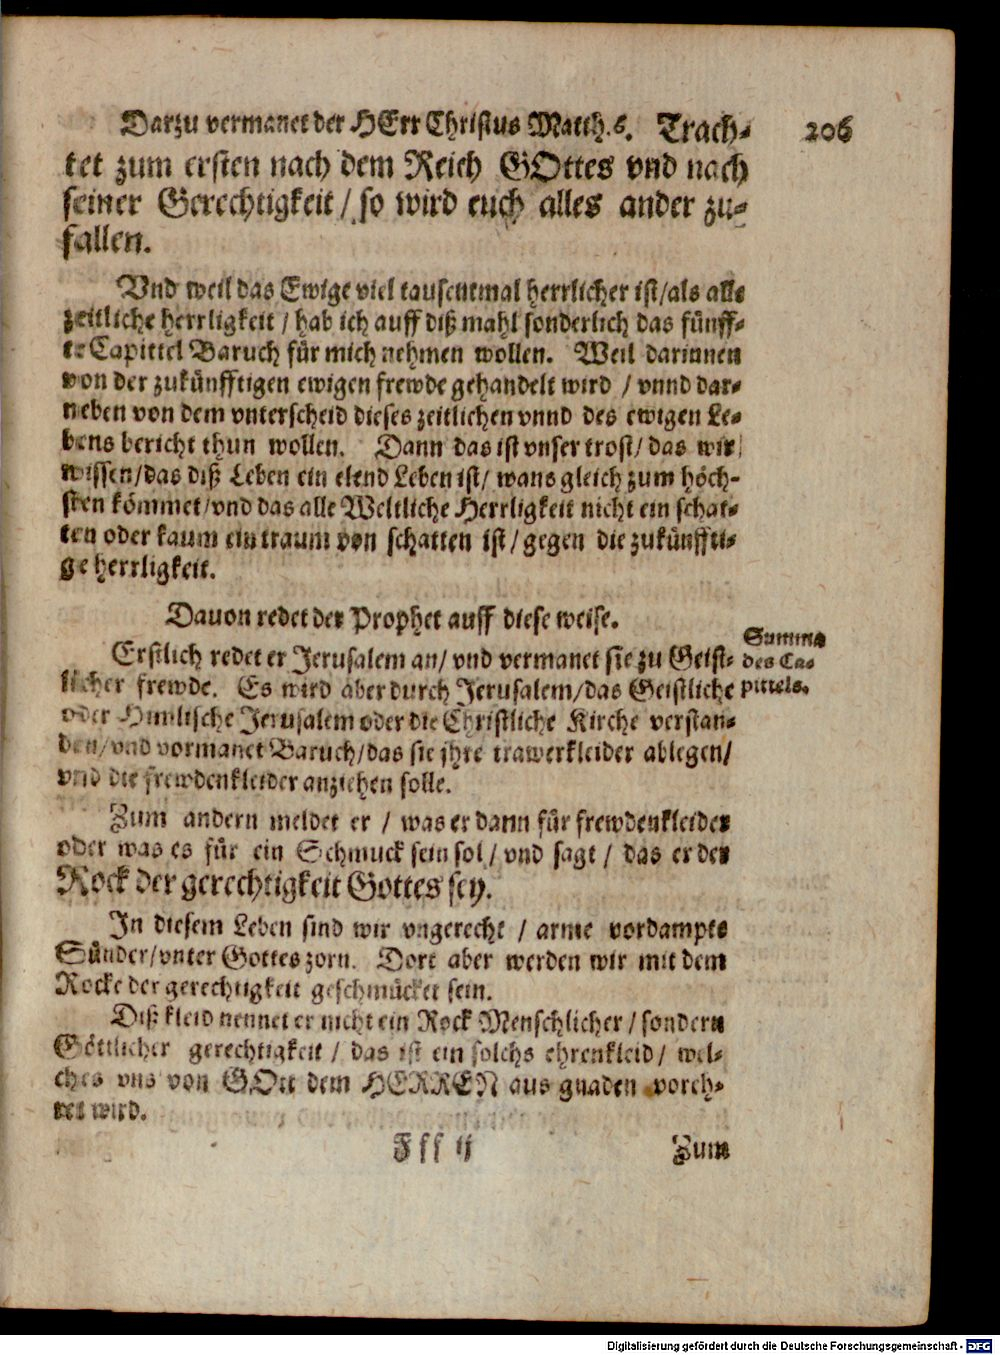 206
Darzu vermanet der HErr Christus Matth. 6. Trach-
tet zum ersten nach dem Reich GOttes vnd nach
seiner Gerechtigkeit / so wird euch alles ander zu-
fallen.
Vnd weil das Ewige viel tausentmal herrlicher ist/als alle
zeitliche herrligkeit / hab ich auff diß mahl sonderlich das fünff-
te Capittel Baruch für mich nehmen wollen. Weil darinnen
von der zukünfftigen ewigen frewde gehandelt wird / vnnd dar-
neben von dem vnterscheid dieses zeitlichen vnnd des ewigen Le-
bens bericht thun wollen. Dann das ist vnser trost/ das wir
wissen/das diß Leben ein elend Leben ist/ wans gleich zum höch-
sten kömmet/vnd das alle Weltliche Herrligkeit nicht ein schat-
ten oder kaum ein traum von schatten ist/gegen die zukünffti-
ge herrligkeit.
Dauon redet der Prophet auff diese weise.
Summa
des Ca-
pittels.
Erstlich redet er Jerusalem an/ vnd vermanet sie zu Geist-
licher frewde. Es wird aber durch Jerusalem/das Geistliche
oder Himlische Jerusalem oder die Christliche Kirche verstan-
den/ vnd vormanet Baruch/das sie jhre trawerkleider ablegen/
vnd die frewdenkleider anziehen solle.
Zum andern meldet er / was er dann für frewdenkleider
oder was es für ein Schmuck sein sol/ vnd sagt / das er der
Rock der gerechtigkeit Gottes sey.
In diesem Leben sind wir vngerecht / arme vordampte
Sünder/vnter Gottes zorn. Dort aber werden wir mit dem
Rocke der gerechtigkeit geschmücket sein.
Diß kleid nennet er nicht ein Rock Menschlicher / sondern
Göttlicher gerechtigkeit / das ist ein solchs ehrenkleid/ wel-
ches vns von GOtt dem HERREN aus gnaden voreh-
ret wird.
Fff ij
Zum
Digitalisierung gefördert durch die Deutsche Forschungsgemeinschaft - DFG